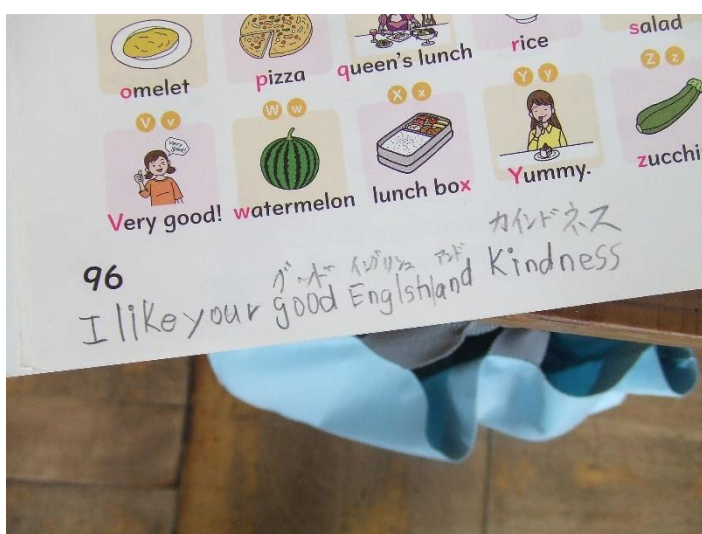 omelet pizza queen's lunch rice salad
V v W w X x Y y Z z
Very good!
Very good! watermelon lunch box Yummy. zucchi
96
グッド イングリッシュ アンド カインドネス
I like your good Englsh and Kindness